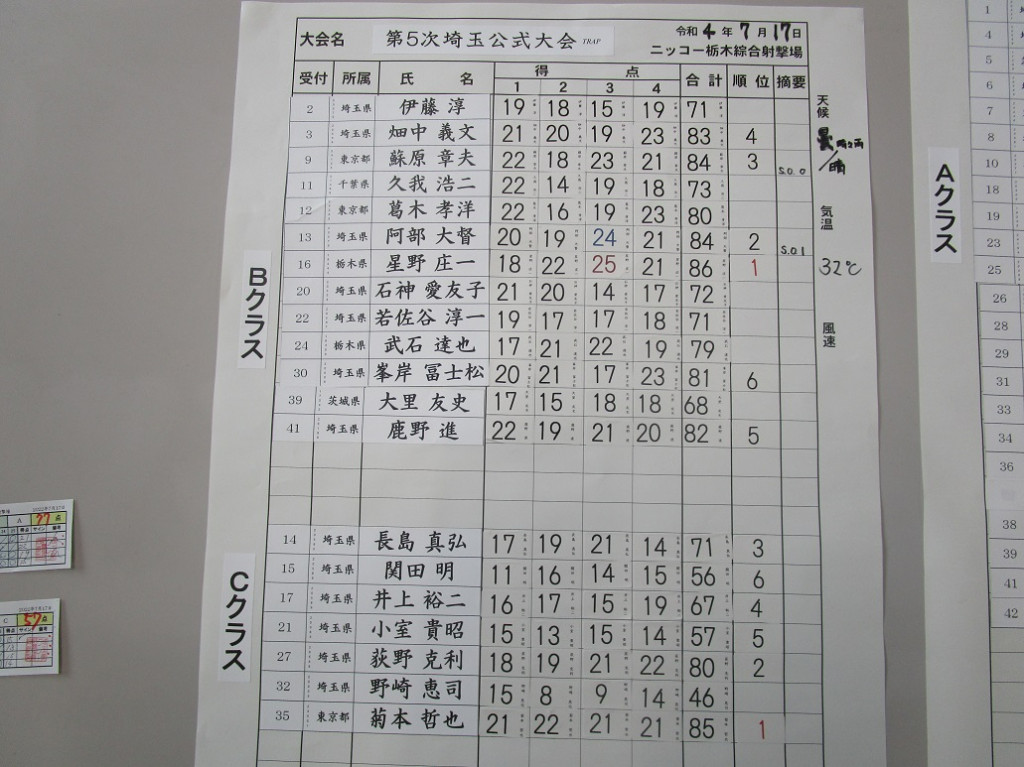 大会名 第5次埼玉公式大会 TRAP 令和4年7月17日
ニッコー栃木綜合射撃場
受付 所属 氏名 得点 合計 順位 摘要
1 2 3 4
2 埼玉県 伊藤 淳 19 18 15 19 71
3 埼玉県 畑中 義文 21 20 19 23 83 4
9 東京都 蘇原 章夫 22 18 23 21 84 3 S.O. 0
11 千葉県 久我 浩二 22 14 19 18 73
12 東京都 葛木 孝洋 22 16 19 23 80
13 埼玉県 阿部 大督 20 19 24 21 84 2 S.O 1
16 栃木県 星野 庄一 18 22 25 21 86 1
20 埼玉県 石神 愛友子 21 20 14 17 72
22 埼玉県 若佐谷 淳一 19 17 17 18 71
24 栃木県 武石 達也 17 21 22 19 79
30 埼玉県 峯岸 冨士松 20 21 17 23 81 6
39 茨城県 大里 友史 17 15 18 18 68
41 埼玉県 鹿野 進 22 19 21 20 82 5
14 埼玉県 長島 真弘 17 19 21 14 71 3
15 埼玉県 関田 明 11 16 14 15 56 6
17 埼玉県 井上 裕二 16 17 15 19 67 4
21 埼玉県 小室 貴昭 15 13 15 14 57 5
27 埼玉県 荻野 克利 18 19 21 22 80 2
32 埼玉県 野崎 恵司 15 8 9 14 46
35 東京都 菊本 哲也 21 22 21 21 85 1
Bクラス
Cクラス
天候
気温
32℃
風速
Aクラス
1
4
5
6
7
8
10
18
19
23
25
26
28
29
31
33
34
36
38
39
41
42
A 77点
C 57点